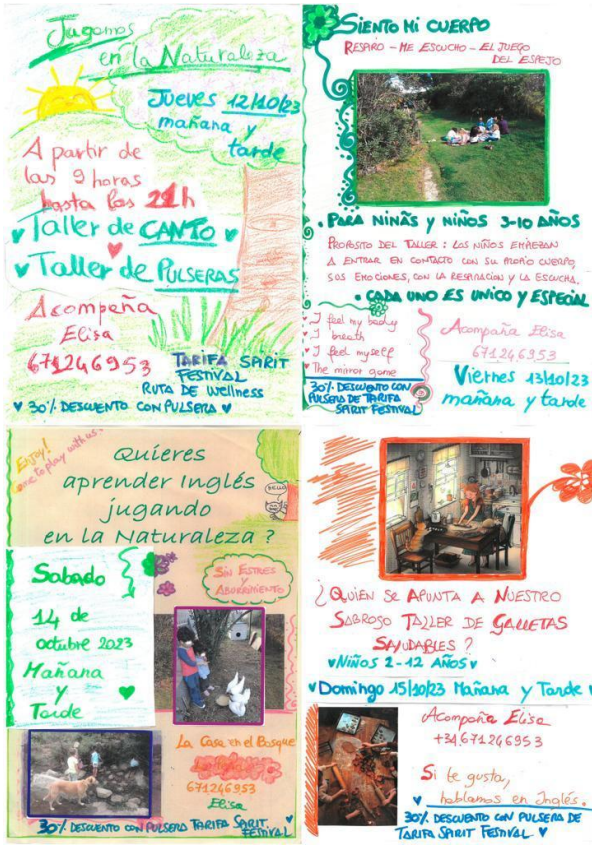 Jugamos
en la Naturaleza
Jueves 12/10/23
mañana y
tarde
A partir de
las 9 horas
hasta las 21h
Taller de CANTO
Taller de PULSERAS
Acompaña
Elisa
671246953
TARIFA SPIRIT
FESTIVAL
RUTA DE Wellness
30% DESCUENTO CON PULSERA
SIENTO Mi CUERPO
RESPIRO - ME ESCUCHO - EL JUEGO
DEL ESPEJO
PARA NINÃS y NIÑOS 3-10 AÑOS
PROPOSITO DEL TALLER: LOS NIÑOS EMPIEZAN
A ENTRAR EN CONTACTO CON SU PROPIO CUERPO,
SUS EMOCIONES, CON LA RESPIRACION Y LA ESCUCHA.
CADA UNO ES UNICO y ESPECIAL
I feel my body
I breath
I feel myself
The mirror game
30% DESCUENTO CON
PULSERA DE TARIFA
SPIRIT FESTIVAL
Acompaña Elisa
671246953
Viernes 13/10/23
mañana y tarde
Enjoy!
come to play with us!
Quieres
aprender Inglés
jugando
en la Naturaleza ?
Sabado
14 de
octubre 2023
Mañana
y
Tarde
Sin ESTRES
y
ABURRIMIENTO
La Casa en el Bosque
671246953
Elisa
30% DESCUENTO CON PULSERA TARIFA SPIRIT
FESTIVAL
¿QUIEN SE APUNTA A NUESTRO
SABROSO TALLER DE GALLETAS
SALUDABLES ?
NIÑOS 2-12 AÑOS
Domingo 15/10/23 Mañana y Tarde
Acompaña Elisa
+34671246953
Si te gusta,
hablamos en Inglés.
30% DESCUENTO CON PULSERA DE
TARIFA SPIRIT FESTIVAL